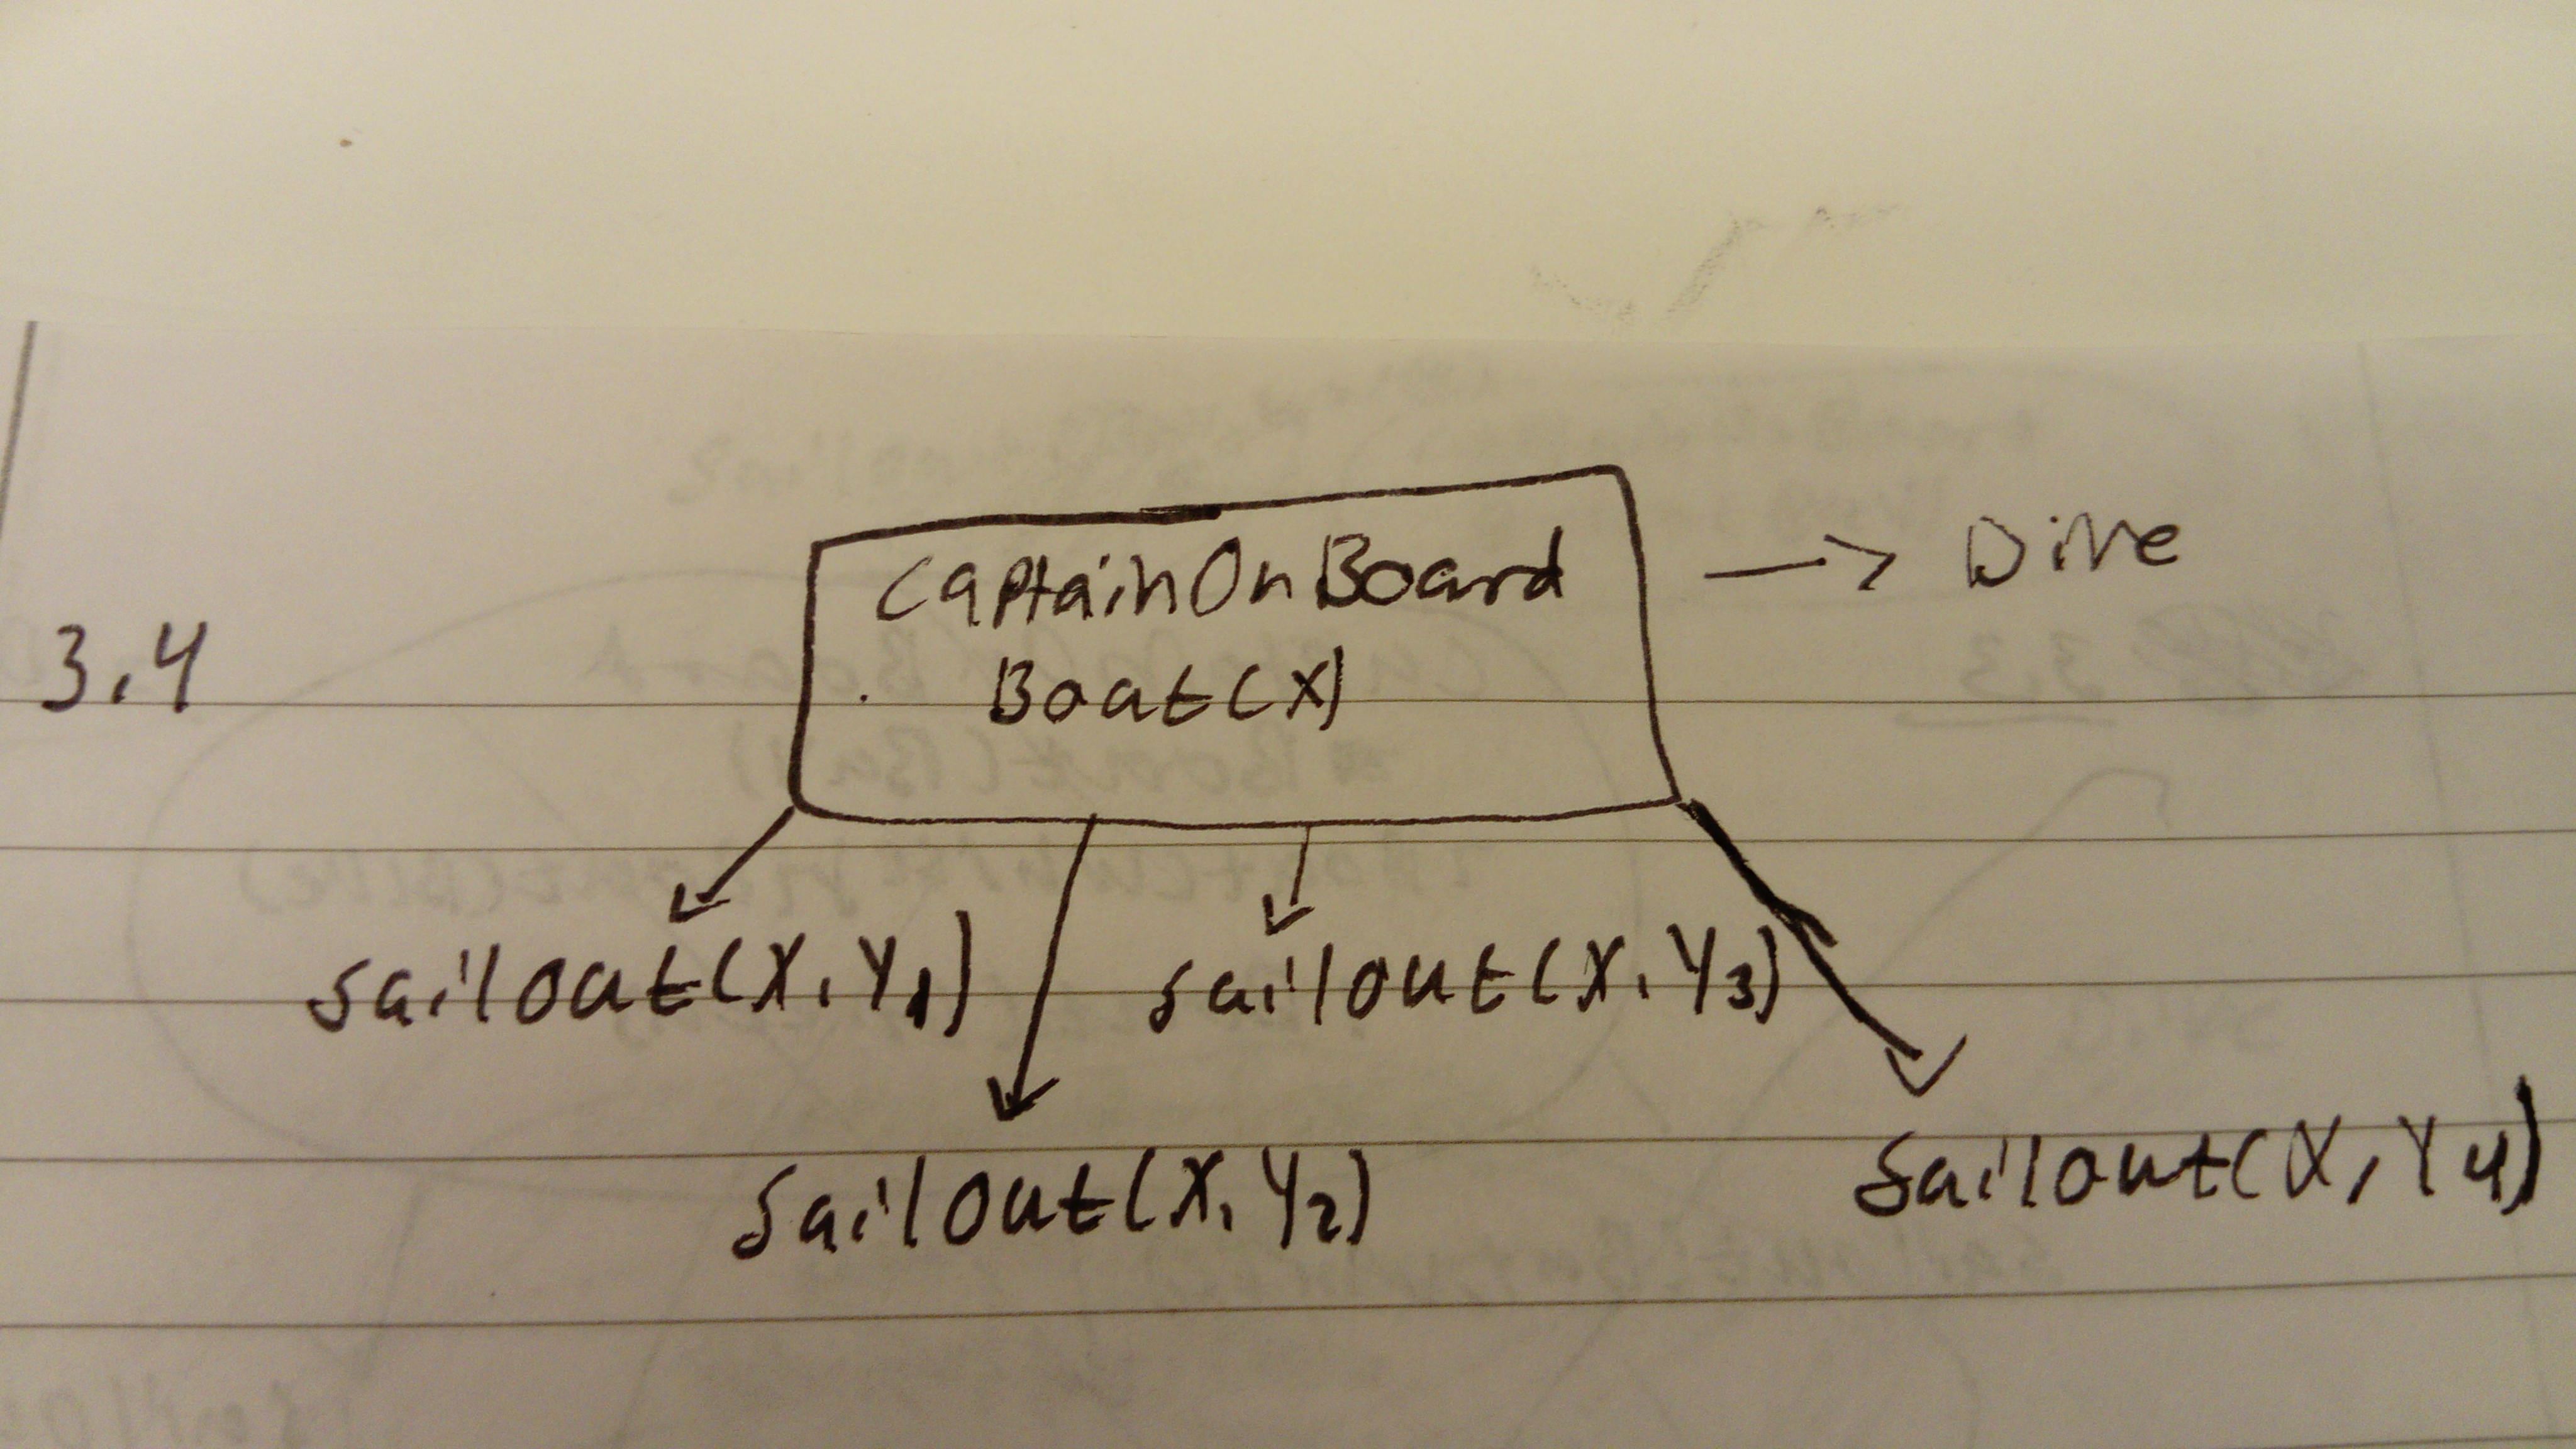 3.4
CaptainOnBoard → Dive
Boat(X)
SailOut(X,Y1) SailOut(X,Y3)
SailOut(X,Y2) SailOut(X,Y4)